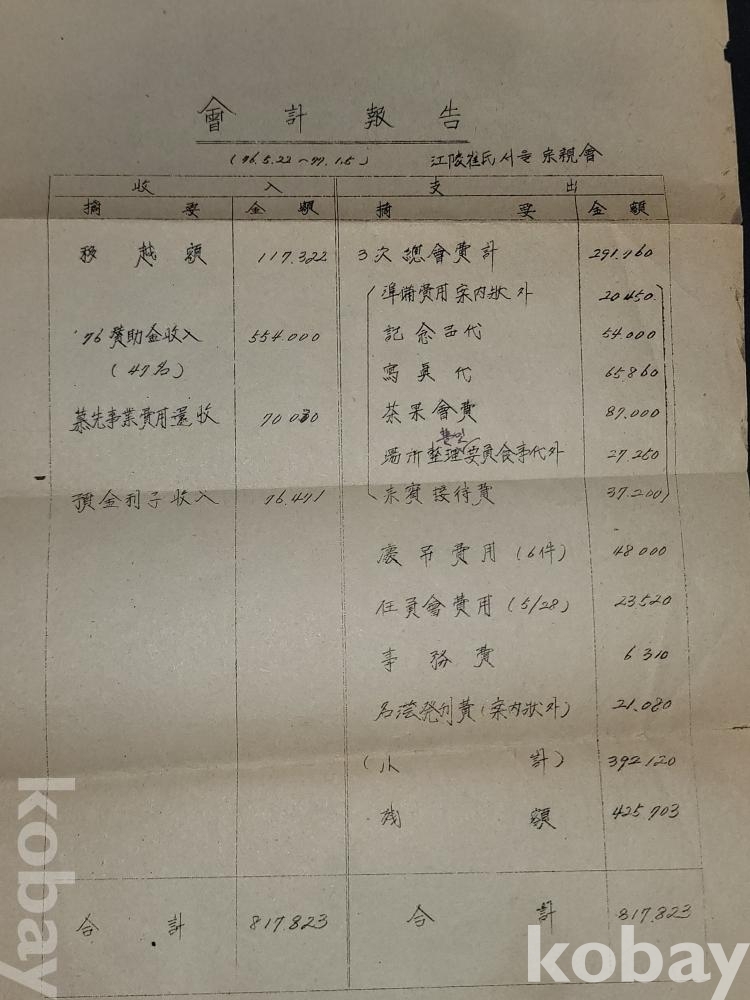 會計報告
('76.5.22 ~ 77.1.5) 江陵崔氏서울 宗親會
收入 支出
摘要 金額 摘要 金額
移越額 117.322 3次總會費計 291.760
(準備費用案內狀外 20.450
'76贊助金收入 554.000 記念品代 54.000
(47名) 寫眞代 65.860
慕先事業費用還收 70.030 茶菓會費 87.000
場所整理委員食事代外 27.250
預金利子收入 76.471 來賓接待費 37.200)
慶弔費用(6件) 48.000
任員會費用(5/28) 23.520
事務費 6.310
名簿發刊費(案內狀外) 21.080
(小計) 392.120
殘額 425.703
合計 817.823 合計 817.823
kobay
kobay